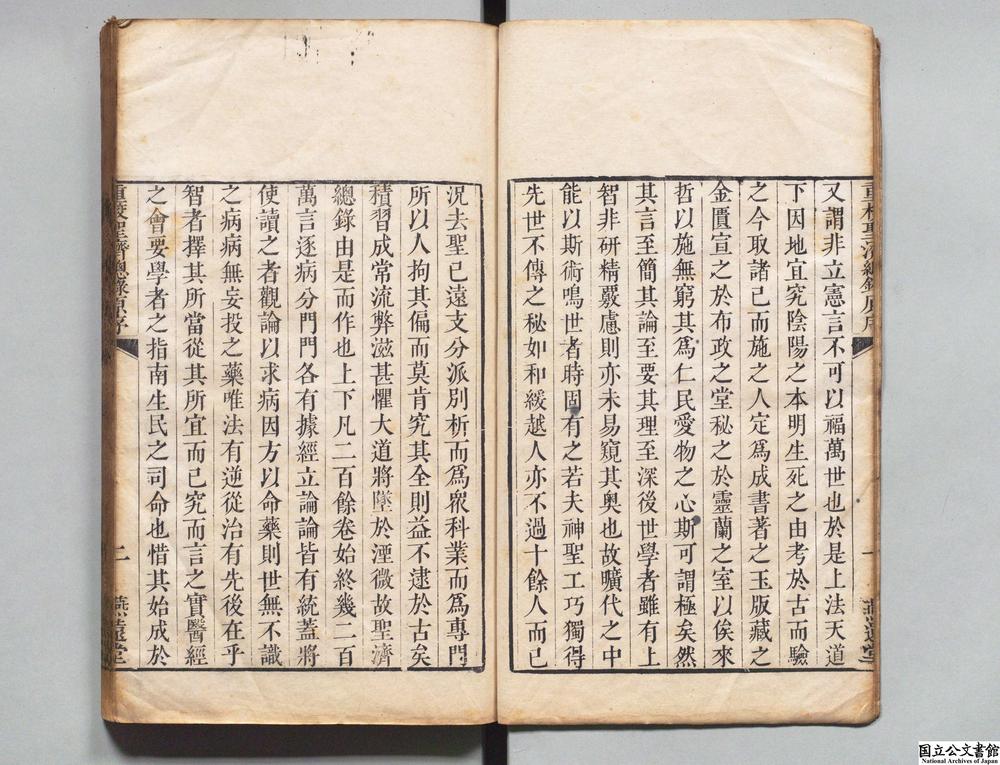 重校聖濟總錄原序
一
燕遠堂
又謂非立憲言不可以福萬世也於是上法天道
下因地宜究陰陽之本明生死之由考於古而驗
之今取諸己而施之人定爲成書著之玉版藏之
金匱宣之於布政之堂秘之於靈蘭之室以俟來
哲以施無窮其爲仁民愛物之心斯可謂極矣然
其言至簡其論至要其理至深後世學者雖有上
智非研精覈慮則亦未易窺其奧也故曠代之中
能以斯術鳴世者時固有之若夫神聖工巧獨得
先世不傳之秘如和緩越人亦不過十餘人而已
況去聖已遠支分派別析而爲衆科業而爲專門
所以人拘其偏而莫肯究其全則益不逮於古矣
積習成常流弊滋甚懼大道將墜於湮微故聖濟
總錄由是而作也上下凡二百餘卷始終幾二百
萬言逐病分門門各有據經立論論皆有統蓋將
使讀之者觀論以求病因方以命藥則世無不識
之病病無妄投之藥唯法有逆從治有先後在乎
智者擇其所當從其所宜而已究而言之實醫經
之會要學者之指南生民之司命也惜其始成於
重校聖濟總錄原序
二
燕遠堂
国立公文書館
National Archives of Japan